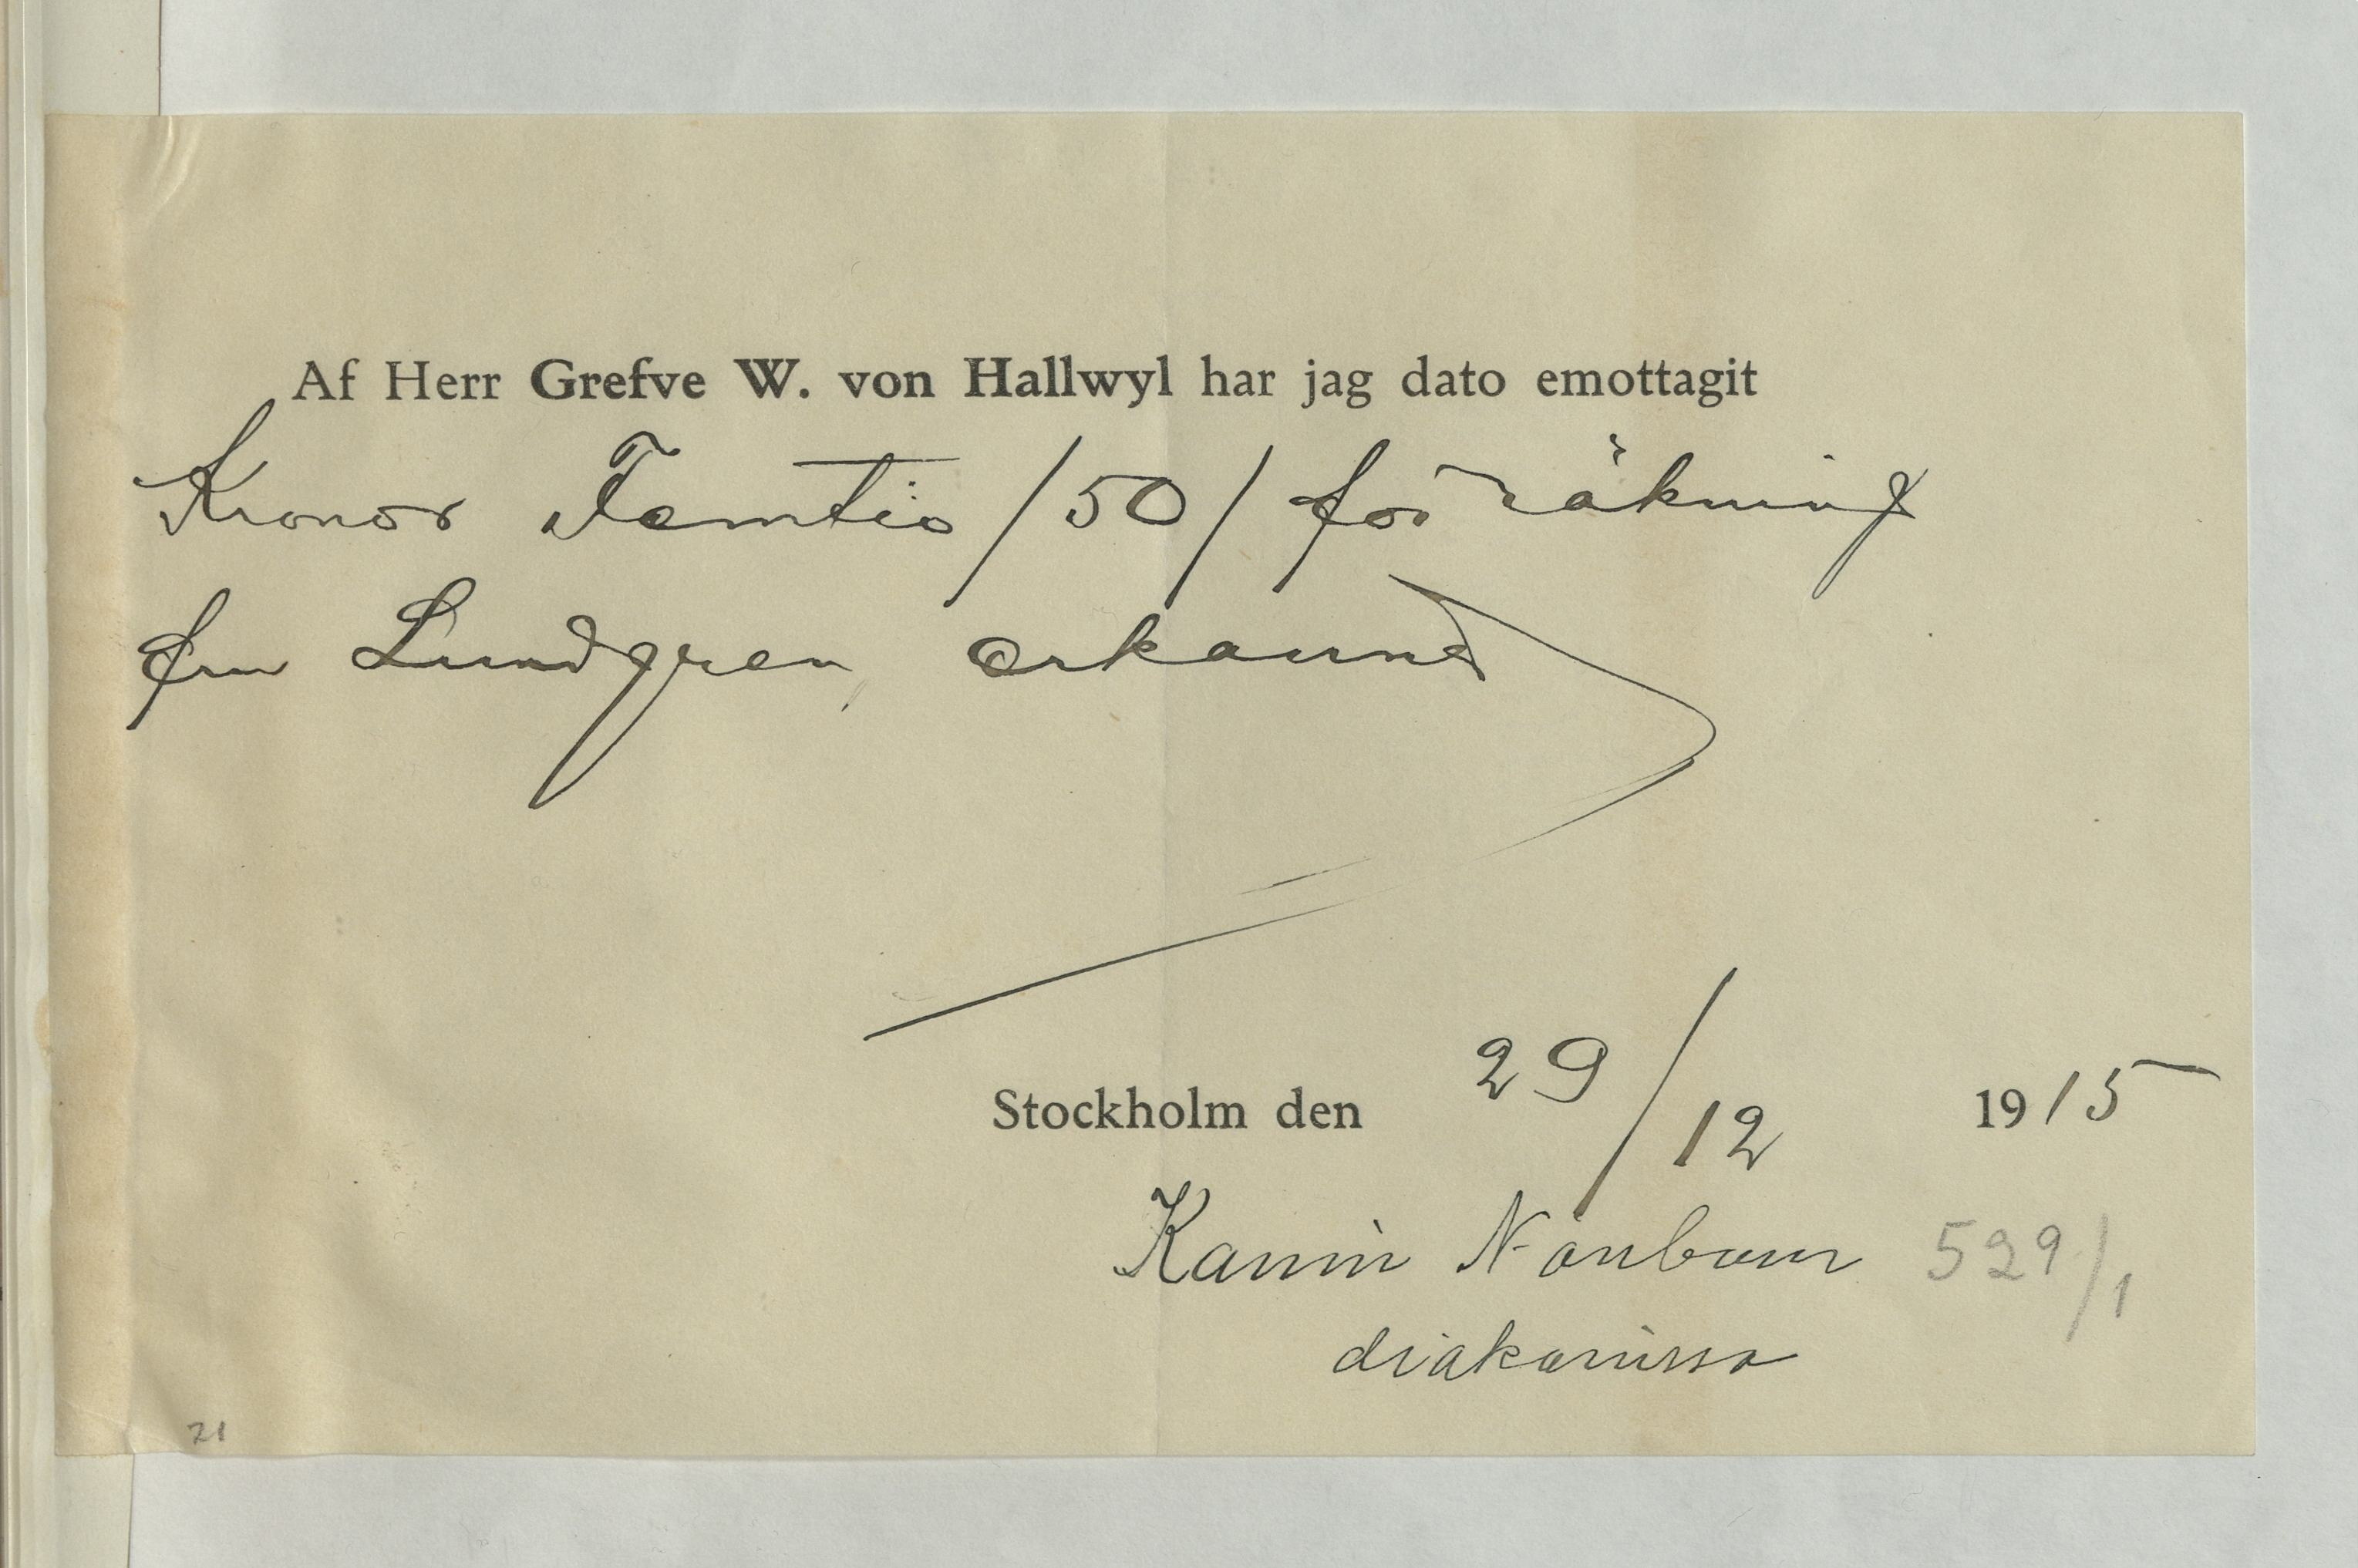 Af Herr Grefve W. von Hallwyl har jag dato emottagit
Kronor Femtio /50/ för räkning
fru Lundgren, erkännes
Stockholm den 29/12 1915
Karin
529/1
diakonissa
21